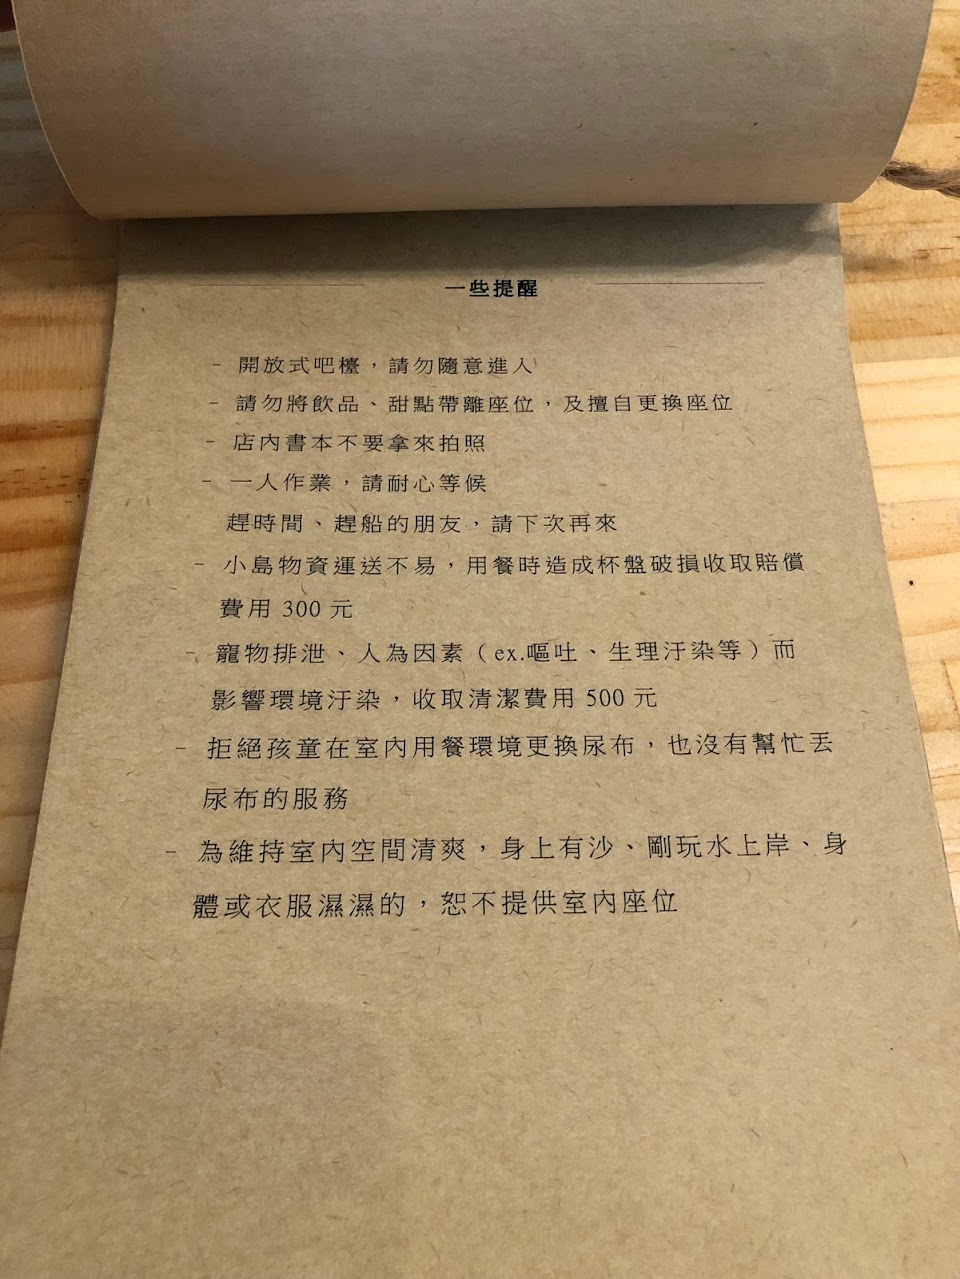 一些提醒
- 開放式吧檯，請勿隨意進入
- 請勿將飲品、甜點帶離座位，及擅自更換座位
- 店內書本不要拿來拍照
- 一人作業，請耐心等候
趕時間、趕船的朋友，請下次再來
- 小島物資運送不易，用餐時造成杯盤破損收取賠償
費用 300 元
- 寵物排泄、人為因素（ex.嘔吐、生理汙染等）而
影響環境汙染，收取清潔費用 500 元
- 拒絕孩童在室內用餐環境更換尿布，也沒有幫忙丟
尿布的服務
- 為維持室內空間清爽，身上有沙、剛玩水上岸、身
體或衣服濕濕的，恕不提供室內座位